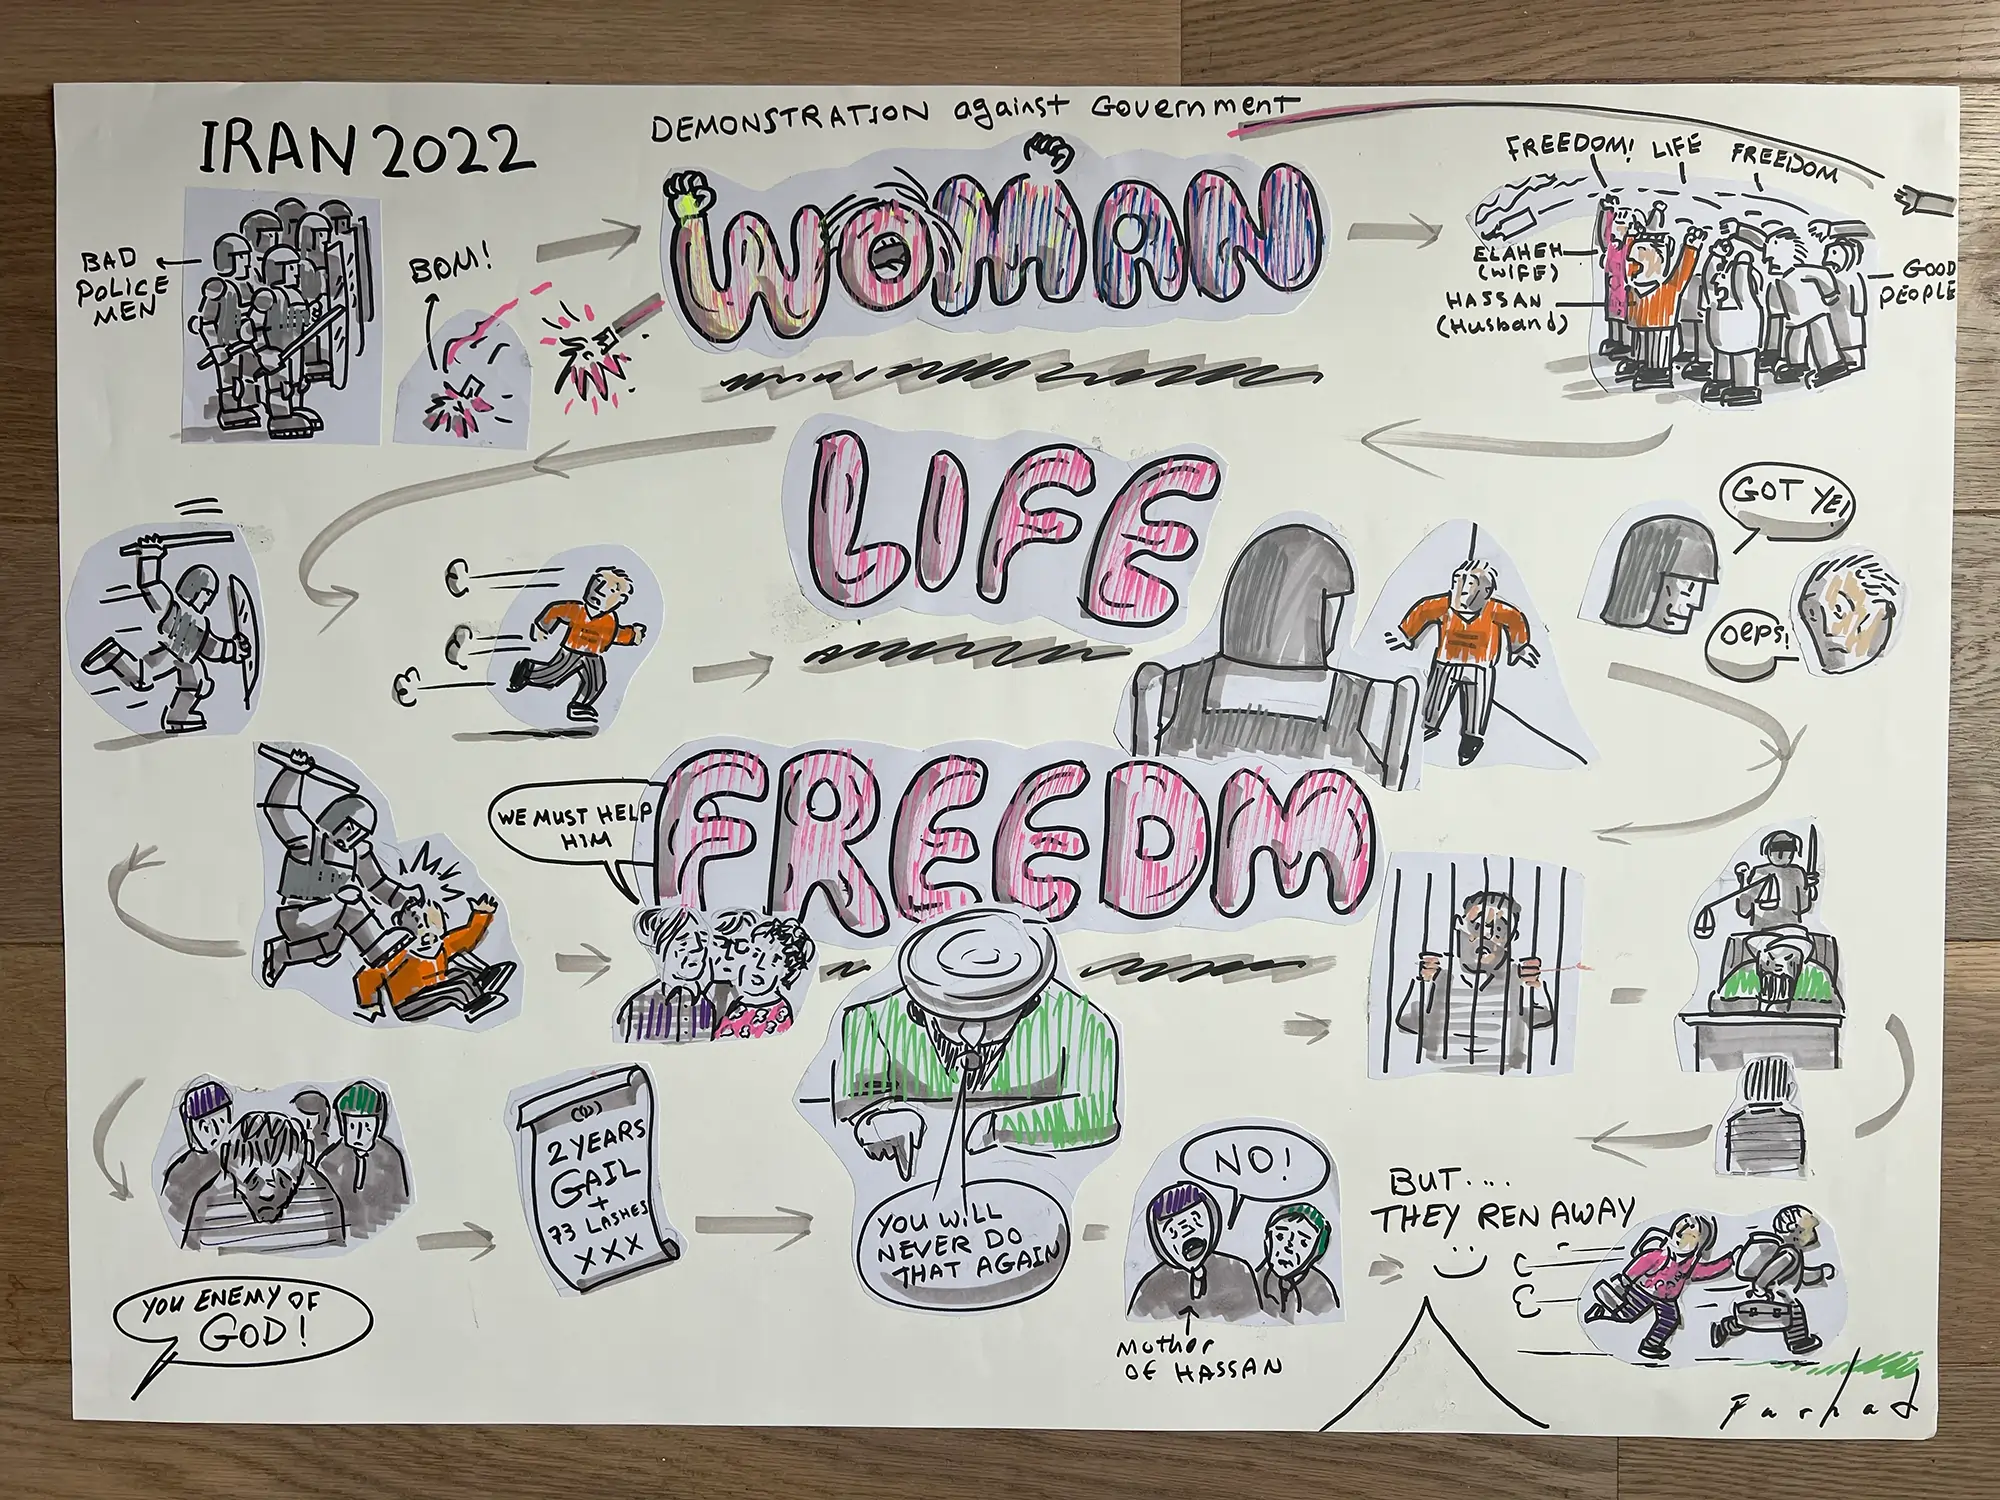 IRAN 2022
DEMONSTRATION against Government
FREEDOM! LIFE FREEDOM
BAD
POLICE
MEN
BOM!
WOMAN
ELAHEH
(WIFE)
HASSAN
(Husband)
GOOD
PEOPLE
LIFE
GOT YE!
OEPS!
WE MUST HELP
HIM
FREEDM
2 YEARS
GAIL
+
73 LASHES
XXX
YOU WILL
NEVER DO
THAT AGAIN
NO!
BUT....
THEY REN AWAY
YOU ENEMY OF
GOD!
Mother
OF HASSAN
Farhad